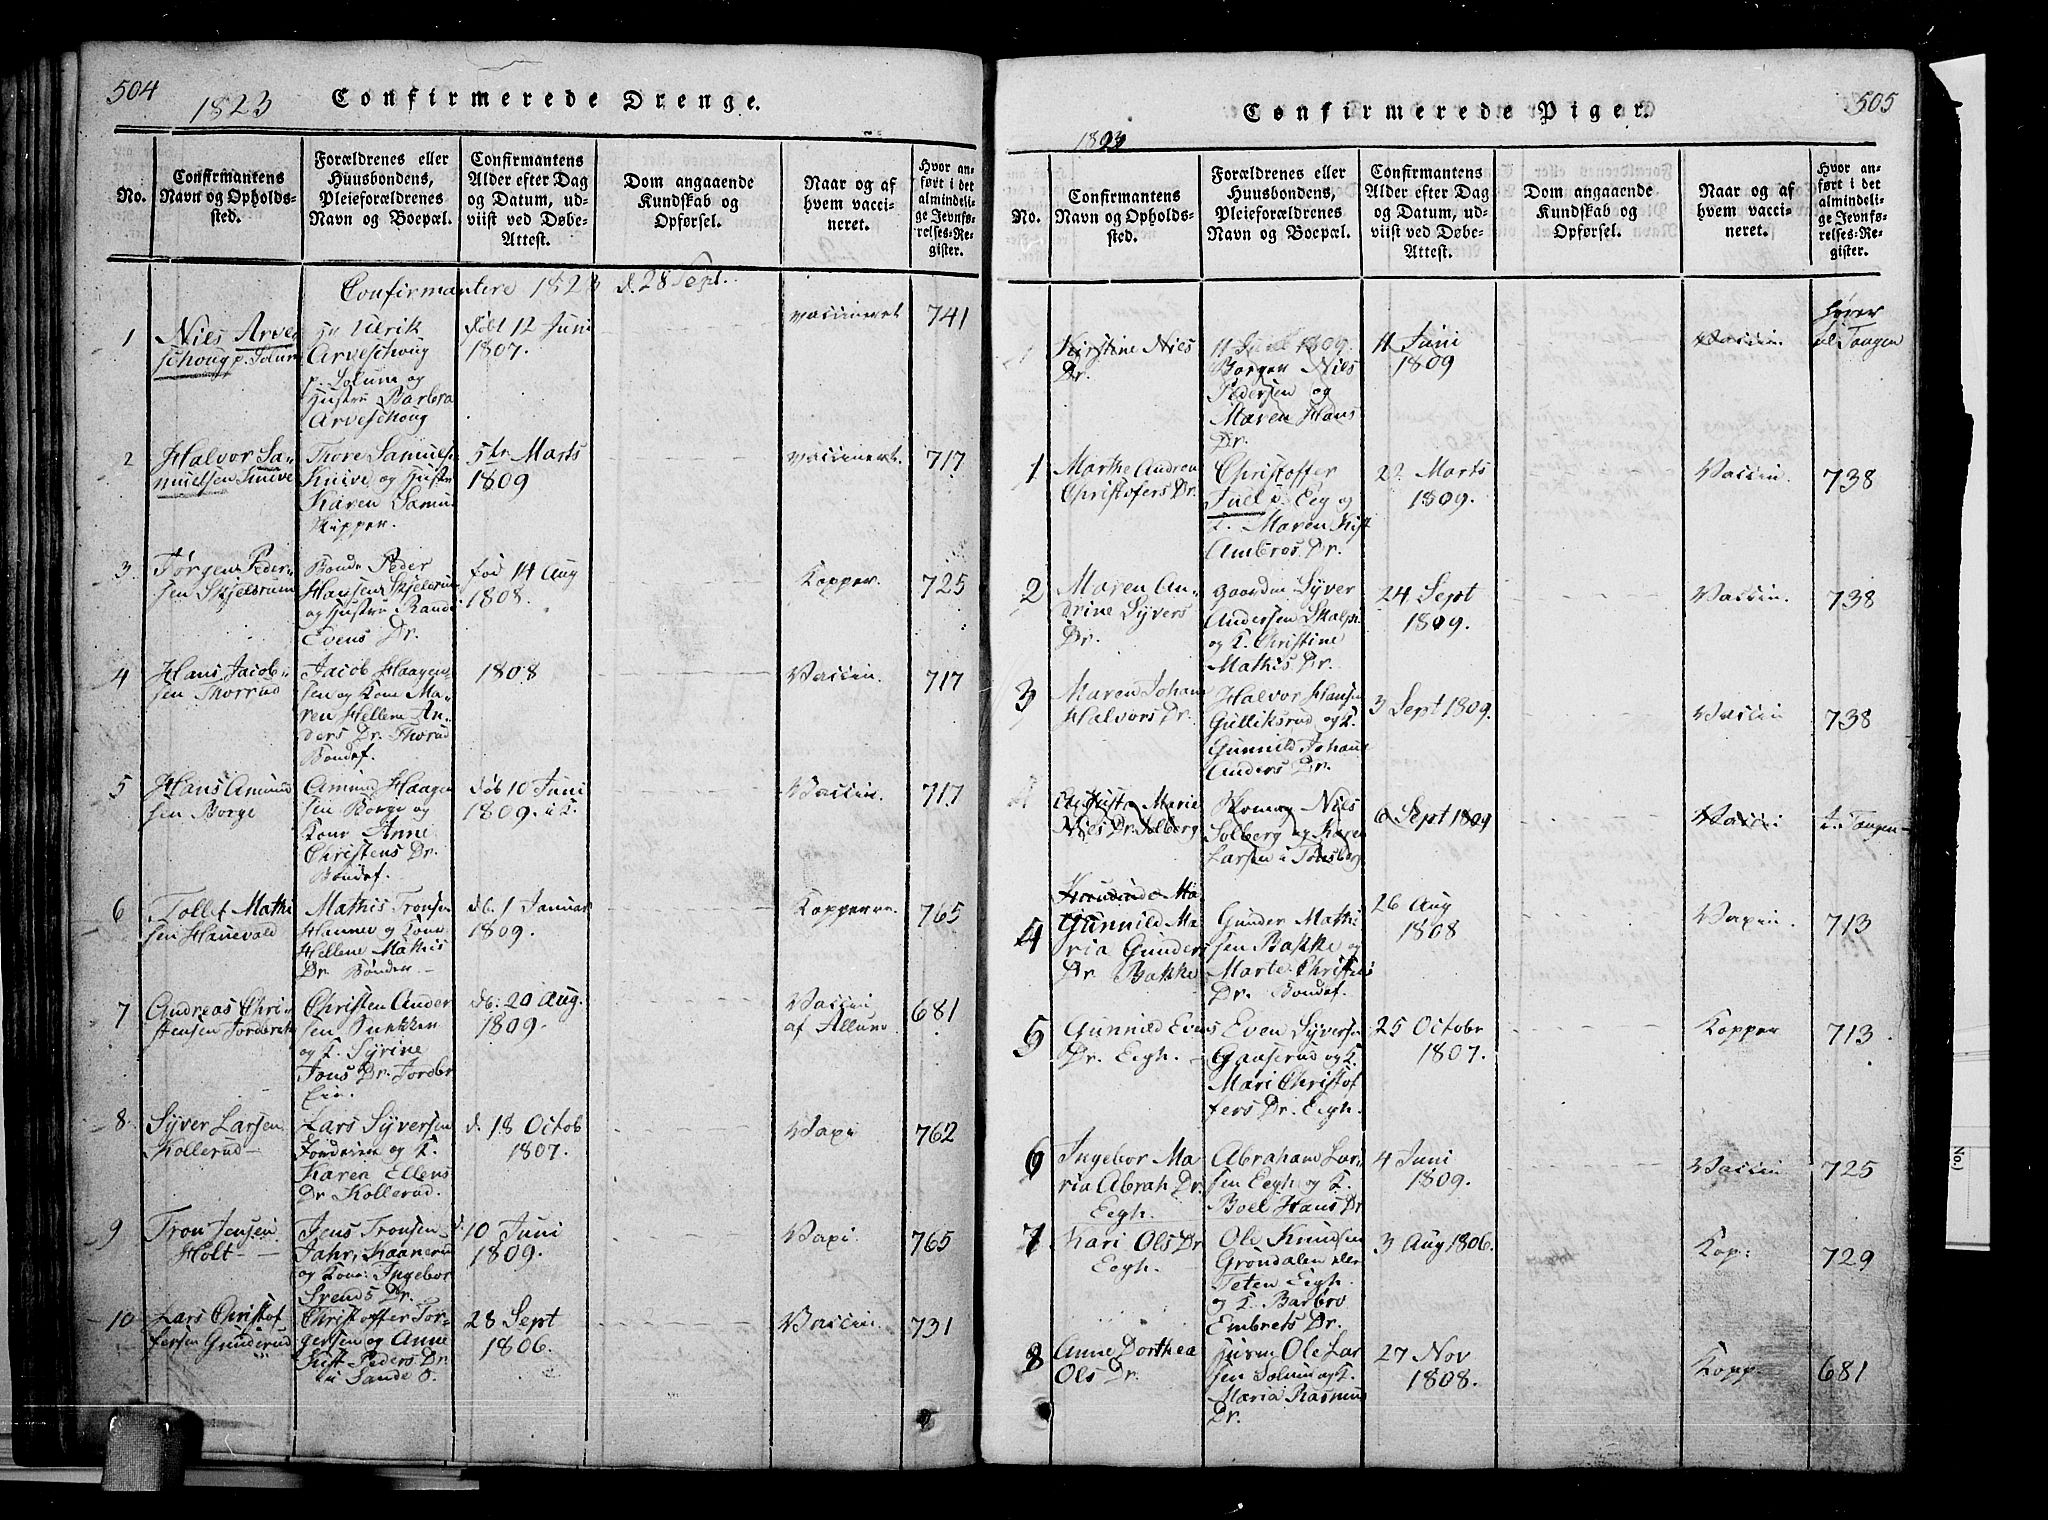 504
1823
Confirmerede Drenge.
No.
Confirmantens
Navn og Opholds-
sted.
Forældrenes eller
Huusbondens,
Pleieforældrenes
Navn og Boepæl.
Confirmantens
Alder efter Dag
og Datum, ud-
viist ved Døbe-
Attest.
Dom angaaende
Kundskab og
Opførsel.
Naar og af
hvem vacci-
neret.
Hvor an-
ført i det
almindeli-
ge Jevnfø-
relses-Re-
gister.
Confirmantere 1823 d. 28 Sept.
1
Niels Arve
schoug p. Solum
Hr Ulrik
Arveschoug
p. Solum og
Hustru Barbra
Arveschoug
døbt 12 Juni
1807.
vaccineret
741
2
Halvor Sa-
muelsen Knive
Thore Samuels
Knive og Hustr
Karen Samu.
Skipper.
5te Marts
1809
vaccineret.
717
3.
Jørgen Peder-
sen Skjelsrum
Bonde Peder
Hansen Skjelsrum
og Hustru Randi
Evens Dr.
fød 14 Aug
1808.
Kopper.
725
4
Hans Jacob-
sen Thorrud
Jacob Haagen-
sen og Kone Ma-
ren Hellene An-
ders Dr. Thorud
Bondef.
1808
Vaccin.
717
5
Hans Amund
sen Borge
Amund Haagen
sen Borge og
Kone Anne
Christens Dr.
Bondef.
døb 10 Juni
1809.
Vaccin.
717
6
Tollef Mathi
sen Hanevold
Mathis Tronsen
Hannev og Kone
Hellene Mathis
Dr. Bønder
db. 1 Januar
1809.
Kopperne.
765
7
Andreas Chri-
stensen Jordbrek
Christen Ander
sen
og K. Syrine
Jons Dr. Jordbr
db: 20 Aug.
1809.
Vaccin
af Allum
681
8.
Syver Larsen
Kollerud
Lars Syversen
og K.
Karen Ellens
Dr Kollerud.
d. 18 Octob
1807.
Vaxi
762
9
Tron Jensen
Holt
Jens Tronsen
og Kone: Ingebor
Svends Dr.
d. 10 Juni
1809.
Vaxi.
765
10
Lars Christof
fersen Gunderud
Christoffer Tor-
gersen og Anne
Kist. Peders Dr
i Sande
28 Sept
1806.
Vaccin.
731
505
Confirmerede Piger.
1823
No.
Confirmantens
Navn og Opholds-
sted.
Forældrenes eller
Huusbondens,
Pleieforældrenes
Navn og Boepæl.
Confirmantens
Alder efter Dag
og Datum, ud-
viist ved Døbe-
Attest.
Dom angaaende
Kundskab og
Opførsel.
Naar og af
hvem vacci-
neret.
Hvor an-
ført i det
almindeli-
ge Jevnfø-
relses-Re-
gister.
Kirstine Niels
Dr.
11 Juni 1809.
Borger Niels
Pedersen og
Maren Hans
Dr.
11 Juni
1809
Vaccin.
hører
til Tangen
1
Marthe Andrea
Christofers Dr.
Christoffer
Juel i Eeg og
K. Maren Kist
Ambros. Dr.
22 Marts
1809.
Vaccin.
738
2
Maren An-
drine Syvers
Dr.
Gaardm Syver
Andersen Skalp.
og K. Christine
Mathis Dr.
24 Sept
1809.
Vaccin.
738
3
Maren Johan
Halvors Dr.
Halvor Hansen
Gulliksrud og K.
Gunnild Johane
Anders Dr.
3 Sept 1809.
Vaccin
738
Augusta Marie
Niels Dr. Solberg
Skomag Niels
Solberg og Karen
Larsen i Tønsberg
6 Sept 1809
Vaccin
t. Tangen
4
Gunnild Ma-
ria Gunders
Dr Bakke
Gunder Mathi
sen Bakke og
Marte Christens
Dr. Bondef.
26 Aug
1808
Vaxin.
713
5
Gunnild Evens
Dr. Eegh.
Even Syvers.
Gauserud og K.
Mari Christof
fers Dr. Eegh.
25 Octobr
1807.
Kopper
713
6
Ingebor Ma-
ria Abrah Dr.
Eegh.
Abraham Lar-
sen Eegh og K.
Boel Hans Dr
4 Juni
1809.
Vaccin
725
7
Kari Ols Dr
Eegh.
Ole Knudsen
Grøndalen eller
Teten Eegh.
og K. Barbro
Embrets Dr.
3 Aug 1806.
Kop:
729
8
Anne Dorthea
Ols Dr.
Husm Ole Lar
sen Solum og K.
Maria Rasmus
Dr.
27 Nov
1808.
Kopp
681
No.)